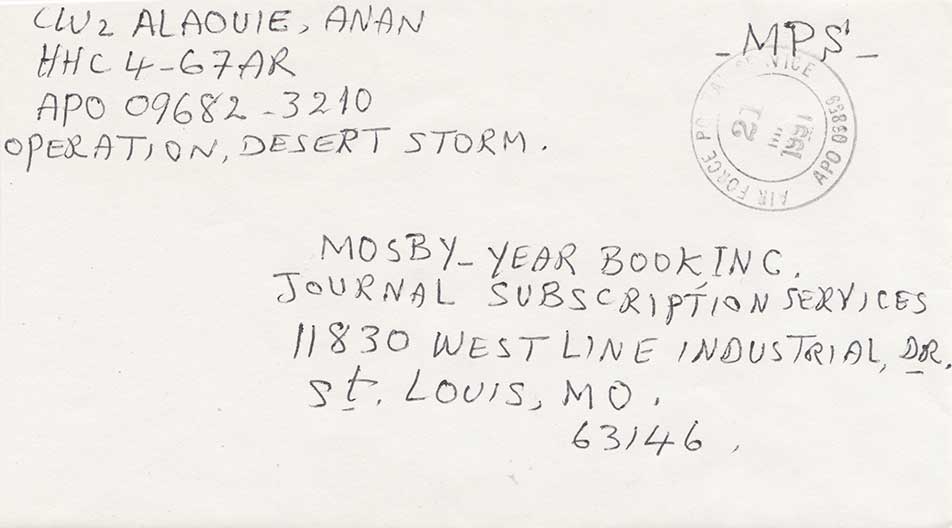 CW2 ALAOUIE, ANAN
HHC 4-67AR
APO 09682-3210
OPERATION, DESERT STORM.
-MPS-
AIR FORCE POSTAL SERVICE
21
1991
APO 09859
MOSBY-YEAR BOOK INC.
JOURNAL SUBSCRIPTION SERVICES
11830 WEST LINE INDUSTRIAL, DR.
St. LOUIS, MO.
63146.